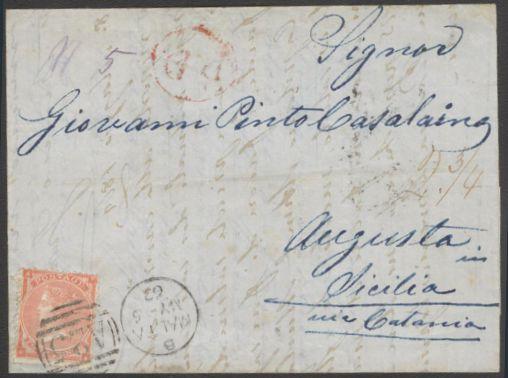 Signor
Giovanni Pinto Casalaina
Augusta in
Sicilia
via Catania
PD
N 5
3/4
POSTAGE
MALTA
B
MY 5
63
A 25